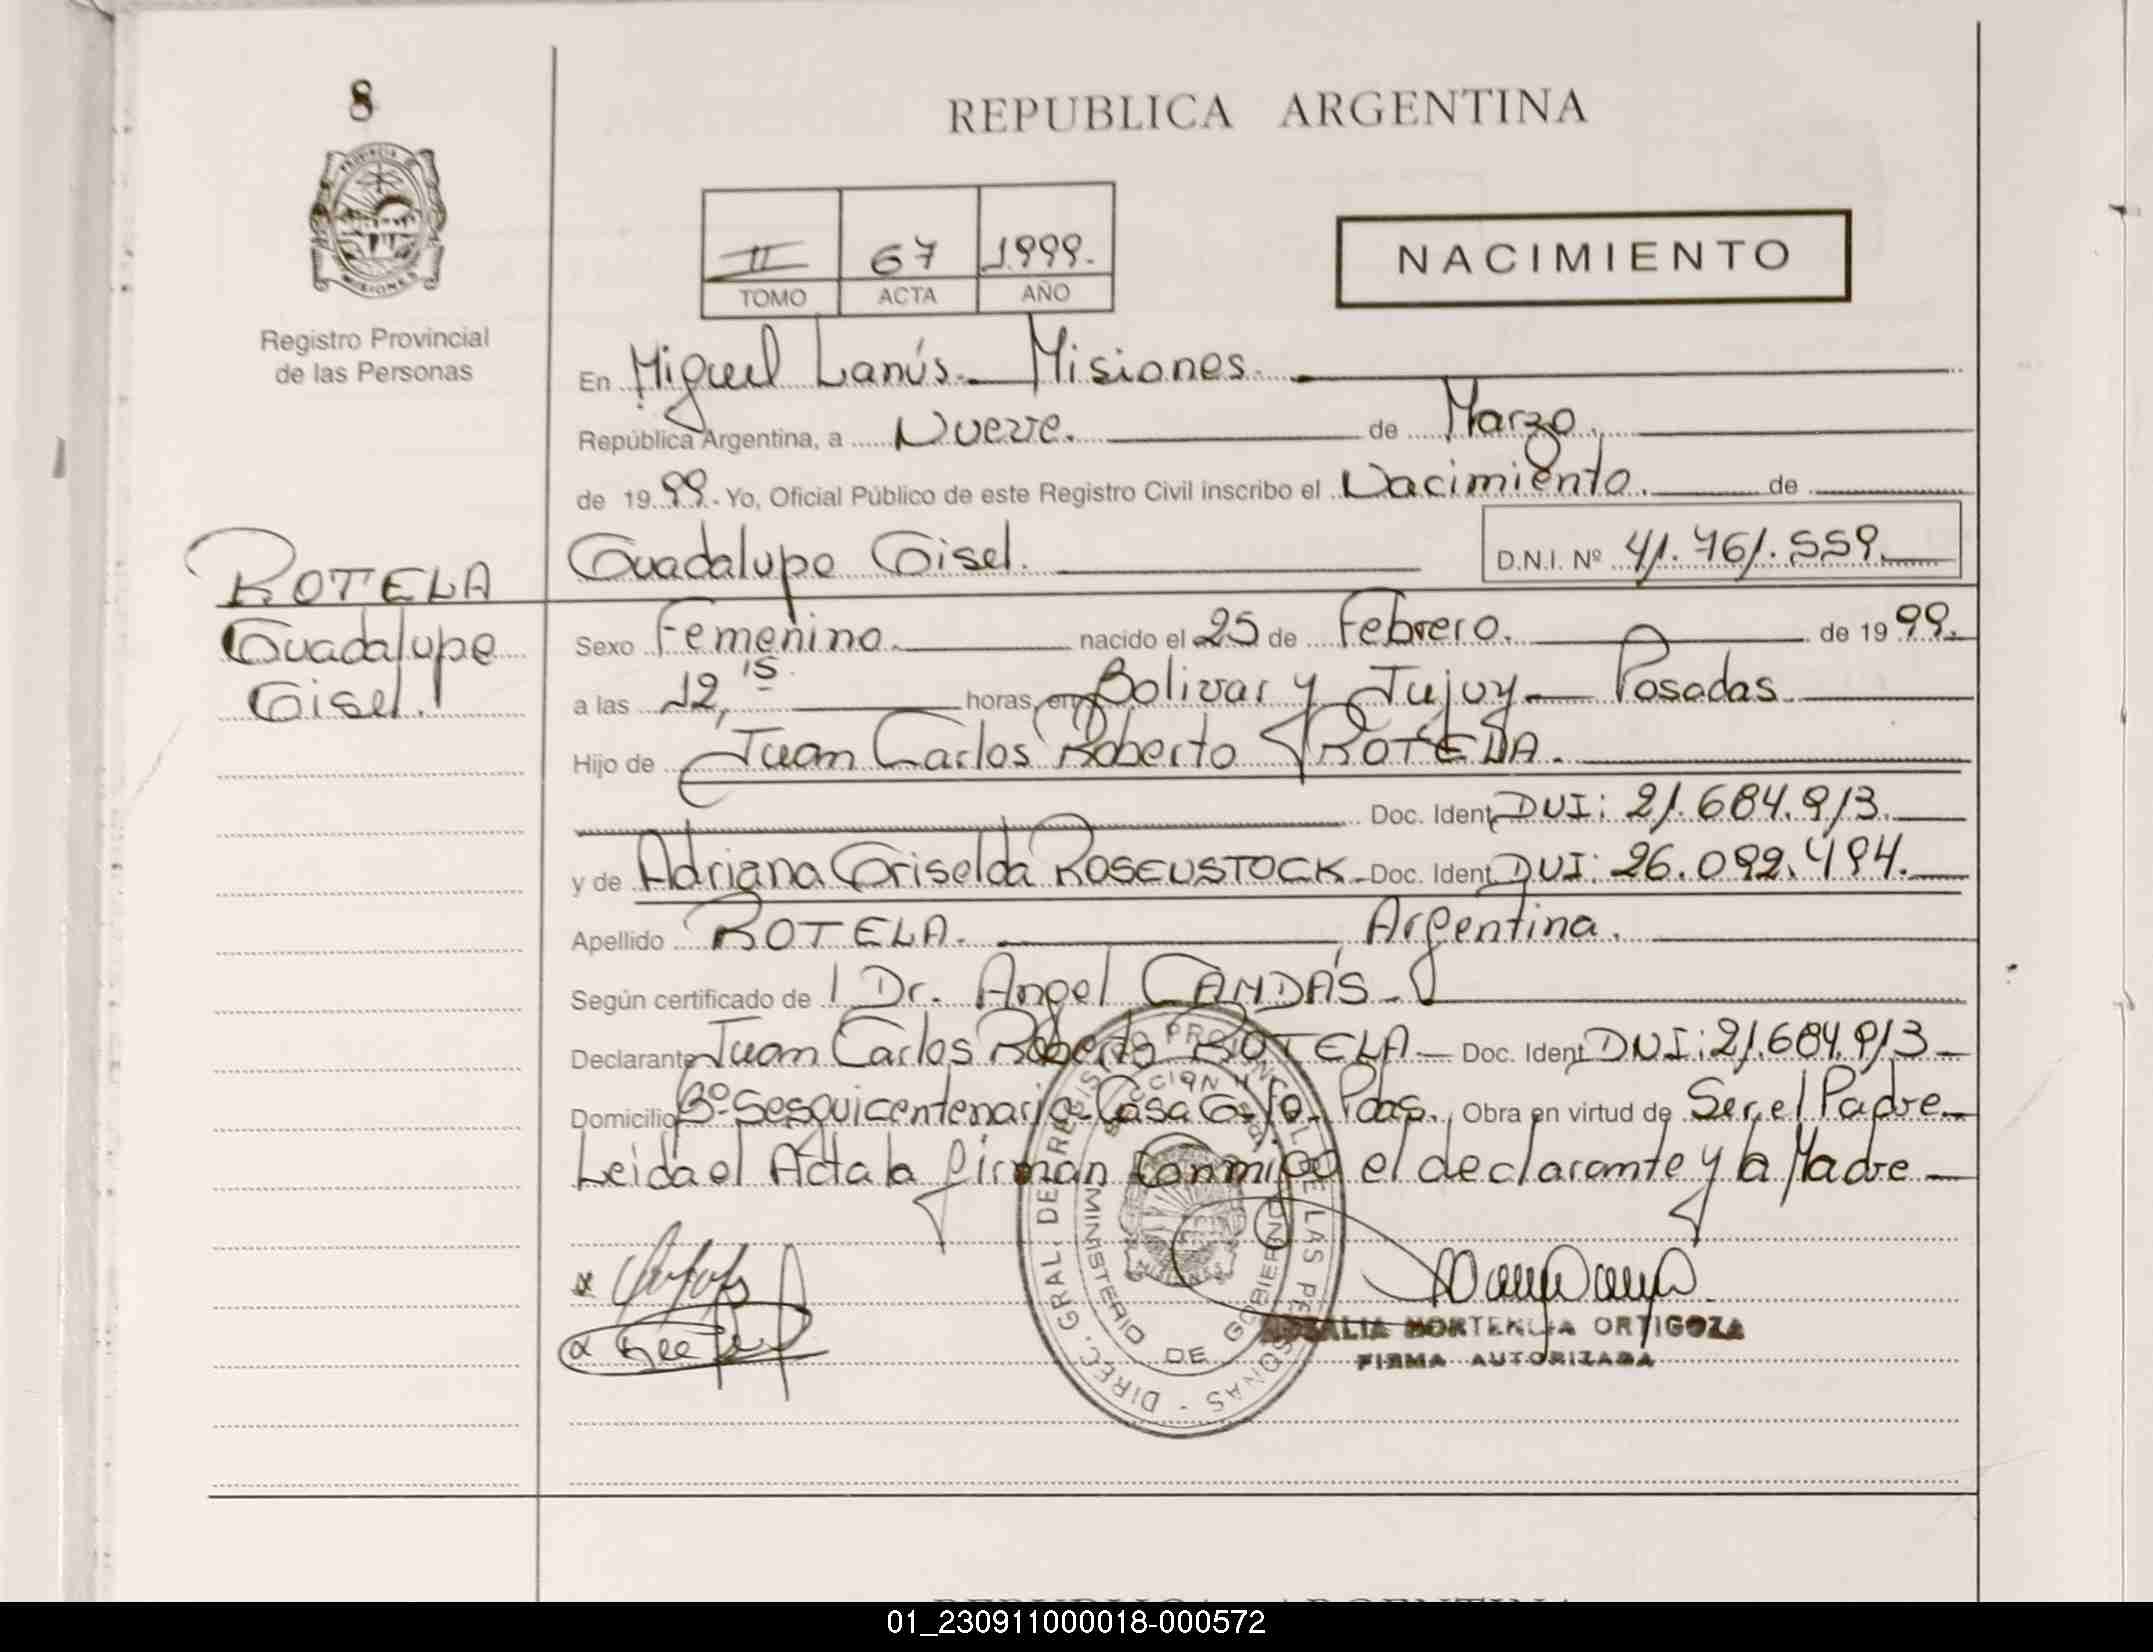 8
REPUBLICA ARGENTINA
PROVINCIA DE
MISIONES
Registro Provincial
de las Personas
II 67 1999.
TOMO ACTA AÑO
NACIMIENTO
En Miguel Lanús - Misiones.
República Argentina, a Nueve. de Marzo.
de 1999. Yo, Oficial Público de este Registro Civil inscribo el Nacimiento. de
Guadalupe Gisel. D.N.I. Nº 41.761.559.
ROTELA
Guadalupe
Gisel.
Sexo Femenino. nacido el 25 de Febrero. de 1999.
a las 12,15 horas, en Bolivar y Jujuy - Posadas.
Hijo de Juan Carlos Roberto ROTELA.
Doc. Ident. DNI: 21.684.913.
y de Adriana Griselda ROSENSTOCK - Doc. Ident. DNI: 26.092.494.
Apellido ROTELA. Argentina.
Según certificado de Dr. Angel CANDÁS.
Declarante Juan Carlos Roberto ROTELA - Doc. Ident. DNI: 21.684.913 -
Domicilio Bº Sesquicentenario - Casa - Pdas. Obra en virtud de Ser el Padre -
Leida el Acta la firman conmigo el declarante y la Madre -
DIREC. GRAL. DE REGISTRO PROVINCIAL DE LAS PERSONAS
MINISTERIO DE GOBIERNO
MISIONES
HORTENCIA ORTIGOZA
FIRMA AUTORIZADA
REPUBLICA ARGENTINA
01_230911000018-000572